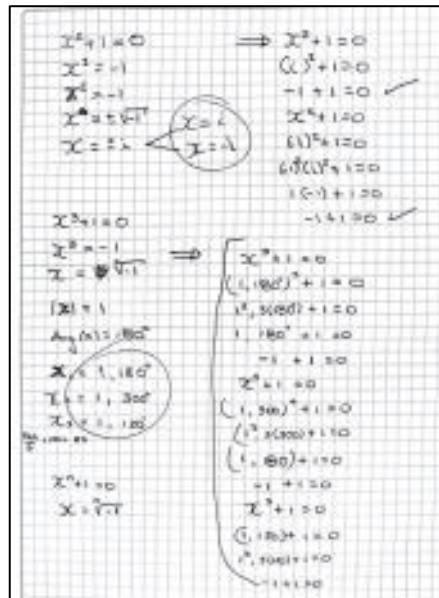 x² + 1 = 0
x² = -1
x² = -1
x = ±√-1
x = ± i
x = i
x = -i
⇒ x² + 1 = 0
(i)² + 1 = 0
-1 + 1 = 0 ✓
x² + 1 = 0
(-i)² + 1 = 0
(i)² + 1 = 0
1(-1) + 1 = 0
-1 + 1 = 0 ✓
x³ + 1 = 0
x³ = -1
x = ∛-1
|x| = 1
Arg(x) = 180°
x₁ = 1, 180°
= 1, 300°
xⁿ + 1 = 0
x = ⁿ√-1
⇒ x³ + 1 = 0
(1, 180°)³ + 1 = 0
1³, 3(180) + 1 = 0
1, 180° + 1 = 0
-1 + 1 = 0
x³ + 1 = 0
(1, 300)³ + 1 = 0
(1³, 3(300) + 1 = 0
(1, 180) + 1 = 0
-1 + 1 = 0
x³ + 1 = 0
-1 + 1 = 0